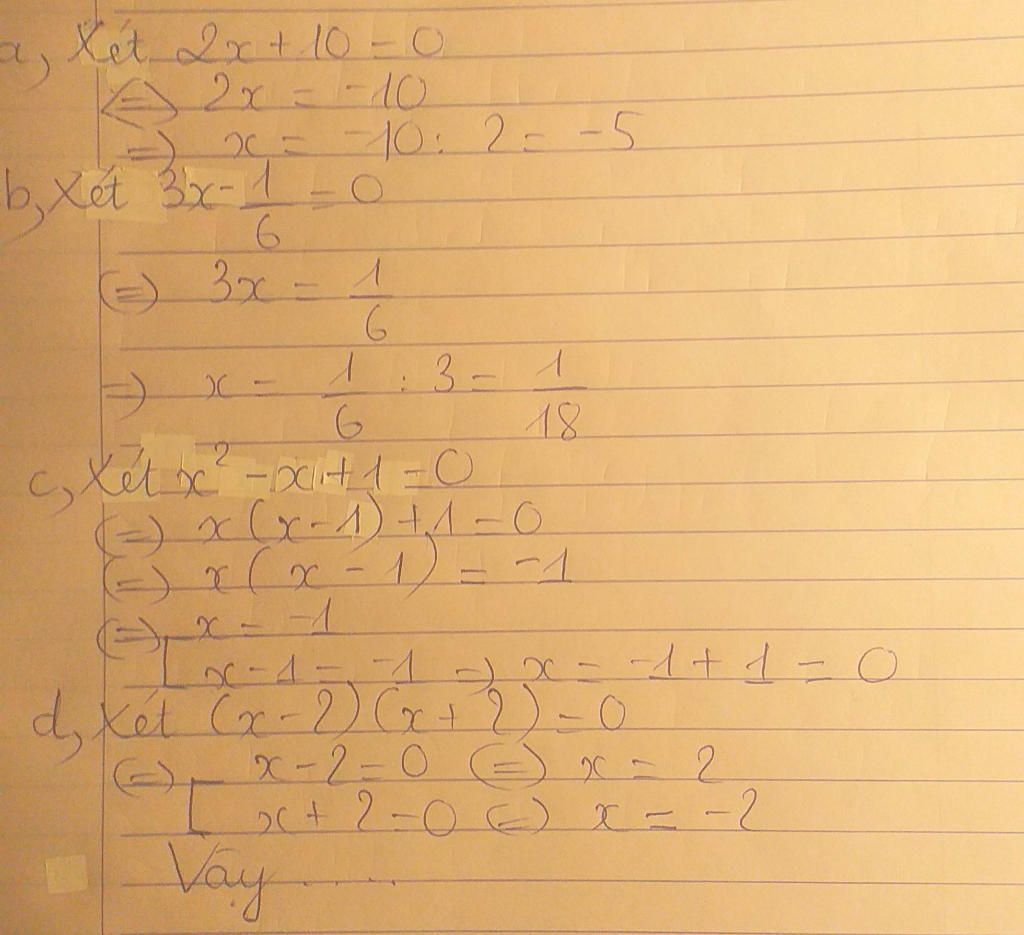 a, Xét 2x + 10 = 0
<=> 2x = -10
=> x = -10 : 2 = -5
b, Xét 3x - 1/6 = 0
<=> 3x = 1/6
=> x = 1/6 : 3 = 1/18
c, Xét x² - x + 1 = 0
<=> x(x - 1) + 1 = 0
<=> x(x - 1) = -1
<=> [ x = -1
x - 1 = -1 => x = -1 + 1 = 0
d, Xét (x - 2)(x + 2) = 0
<=> [ x - 2 = 0 <=> x = 2
x + 2 = 0 <=> x = -2
Vậy .....